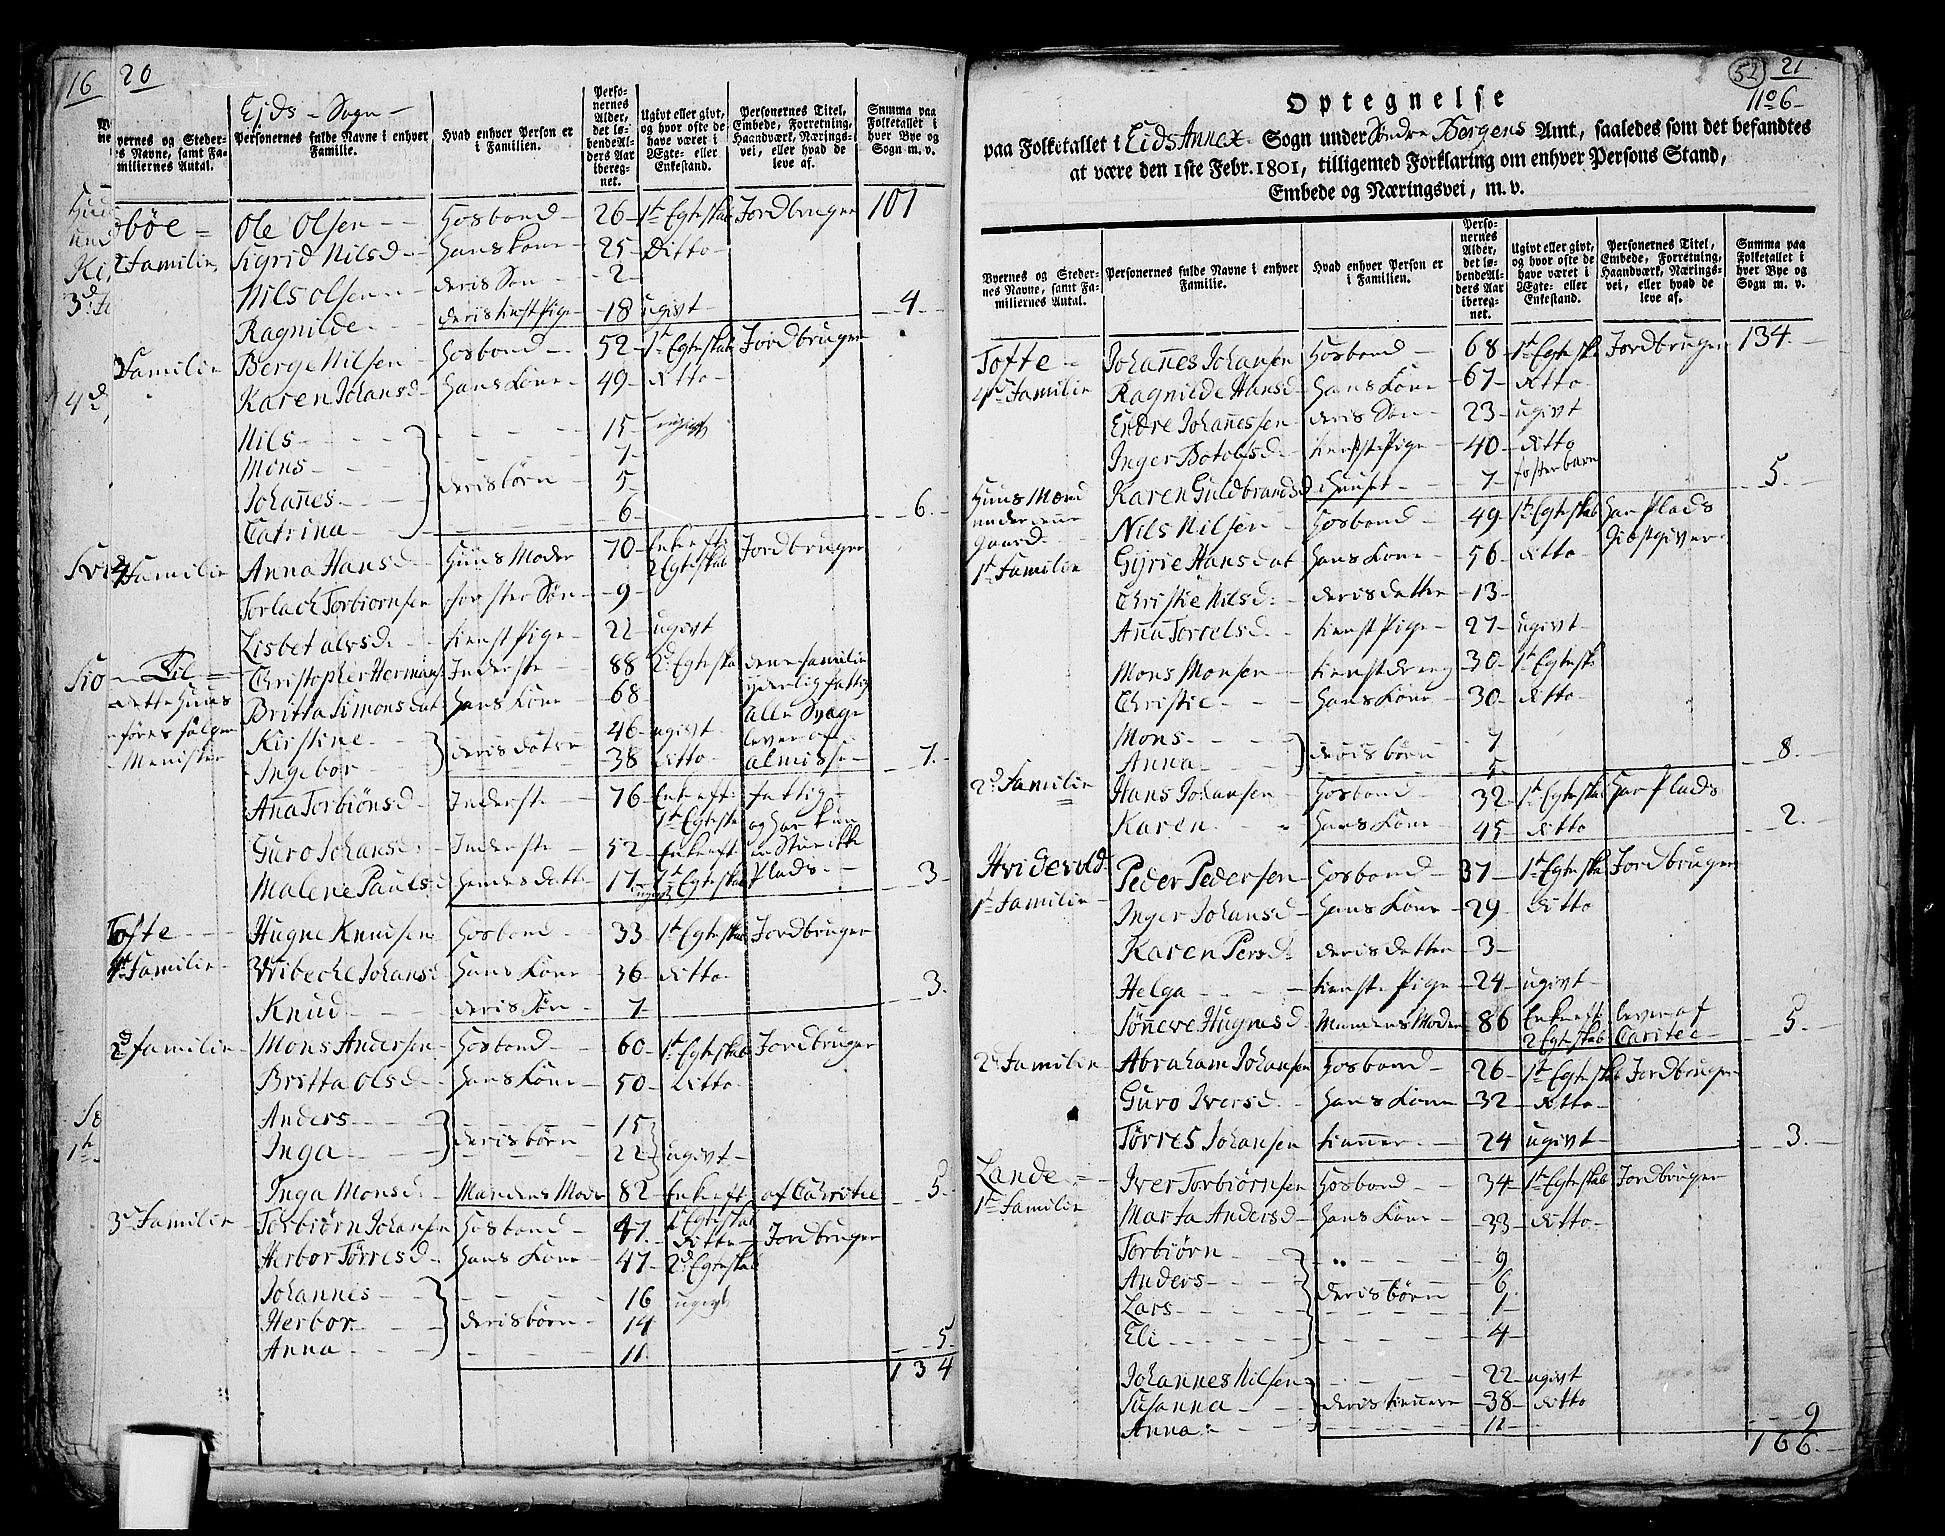 16 20
Ejds - Sogn -
vernes og Steder-
s Navne, samt Fa-
miliernes Antal.
Personernes fulde Navne i enhver
Familie.
Hvad enhver Person er
i Familien.
Perso-
nernes
Alder,
det lø-
bende Al-
ders Aar
ibereg-
net.
Ugivt eller givt,
og hvor ofte de
have været i
Ægte- eller
Enkestand.
Personernes Titel,
Embede, Forretning,
Haandværk, Nærings-
vei, eller hvad de
leve af.
Summa paa
Folketallet i
hver Bye og
Sogn m. v.
bøe = Ole Olsen Hosbond 26 1te Egteskab Jordbruger 101
2 Familie Sigrid Nilsd hans kone 25 Ditto
Nils Olsen deris Søn 2
Ragnilde deris tienstPige 18 ugivt 4
3 Familie Berge Nilsen Hosbond 52 1te Egteskab Jordbruger
Karen Johansd hans Kone 49 ditto
Nils 15
Mons 7
Johannes deris børn 5
Catrina 6 6
4 Familie Anna Hansd Huus Moder 70 Enke efter 2 Egteskab Jordbruger
Torlach Torbiornsen foster Søn 9
Lisbet alvsd tienst Pige 22 ugivt
Christopher Hermans Inderste 88 2d Egteska denne familie
dette Huus Britta Simonsdat hans Kone 68 yderlig fattig
føres følger Kirstine 46 ugivt alle Svage
Menister Ingebor deris døtre 38 ditto lever af almisse 7
Ana Torbiønsd Inderste 76 Enke eft: 1te Egteska fattig
Guro Johansd Inderste 52 Enke eft og har kun en Stue ikke
Malene Paulsd hendes datter 17 1te Egteskab Plads 3
Tofte Hugne Knudsen Hosbond 33 1te Egteskab Jordbruger
1te Familie Wibeche Johansd hans Kone 36 ditto
Knud deris Søn 7 3
2d familie Mons Andersen Hosbond 60 1te Egteskab Jordbruger
Britta Olsd hans Kone 50 ditto
Anders 15
Inga deris børn 22 ugivt
Inga Monsd Mandens Moder 82 Enke eft 1te Egteskab af Christie 5
3d Familie Torbiørn Johansen Hosbond 47 ditto Jordbruger
Herbor Tørresd hans Kone 47 2d Egteskab
Johannes 16 ugivt
Herbor deris børn 14
Anna 11 5
134
52 21
1106
Optegnelse
paa Folketallet i Eids Annex Sogn under Søndre Bergens Amt, saaledes som det befandtes
at være den 1ste Febr. 1801, tilligemed Forklaring om enhver Persons Stand,
Embede og Næringsvei, m. v.
Byernes og Steder-
nes Navne, samt Fa-
miliernes Antal.
Personernes fulde Navne i enhver
Familie.
Hvad enhver Person er
i Familien.
Perso-
nernes
Alder,
det lø-
bende Al-
ders Aar
ibereg-
net.
Ugivt eller givt,
og hvor ofte de
have været i
Ægte- eller
Enkestand.
Personernes Titel,
Embede, Forretning,
Haandværk, Nærings-
vei, eller hvad de
leve af.
Summa paa
Folketallet i
hver Bye og
Sogn m. v.
Tofte Johannes Johansen Hosbond 68 1te Egteska Jordbruger 134
4de Familie Ragnilde Hansd hans Kone 67 ditto
Endre Johannessen deris Søn 23 ugivt
Inger Botolfsd tienste Pige 40 ditto
Karen Guldbrandsd i huuset 7 foster barn 5
Huus Mænd
under denne
gaard
Nils Nilsen Hosbond 49 1te Egteskab har Plads
1te Familie Gyrie Hansdat hans Kone 56 ditto
Christie Nilsd deris datter 13
Anna Torrelsd tienst Pige 27 ugivt
Mons Monsen tienstdreng 30 1te Egtesk
Christie hans Kone 30 ditto
Mons 7
Anna deris børn 5 8
2d Familie Hans Johansen Hosbond 32 1te Egteskab har Plads
Karen hans Kone 45 ditto 2
Hvidevold Peder Pedersen Hosbond 37 1te Egteska Jordbruger
1te Familie Inger Johansd hans Kone 29 ditto
Karen Persd deris datter 3
Helga tienste Pige 24 ugivt
Sønneve Hugnesd Mandens Moder 86 Enke eft 2 Egteskab lever af Caritee 5
2d Familie Abraham Johansen Hosbond 26 1te Egteskab Jordbruger
Guro Iversd hans Kone 32 ditto
Tørres Johansen tienner 24 ugivt 3
Lande Iver Torbiørnsen Hosbond 34 1te Egteskab Jordbruger
1te Familie Marta Andersd hans Kone 33 ditto
Torbiørn 9
Anders 6
Lars deris børn 1
Eli 4
Johannes Nilsen 22 ugivt
Susanna deris tiennere 38 ditto
Anna 11 9
166